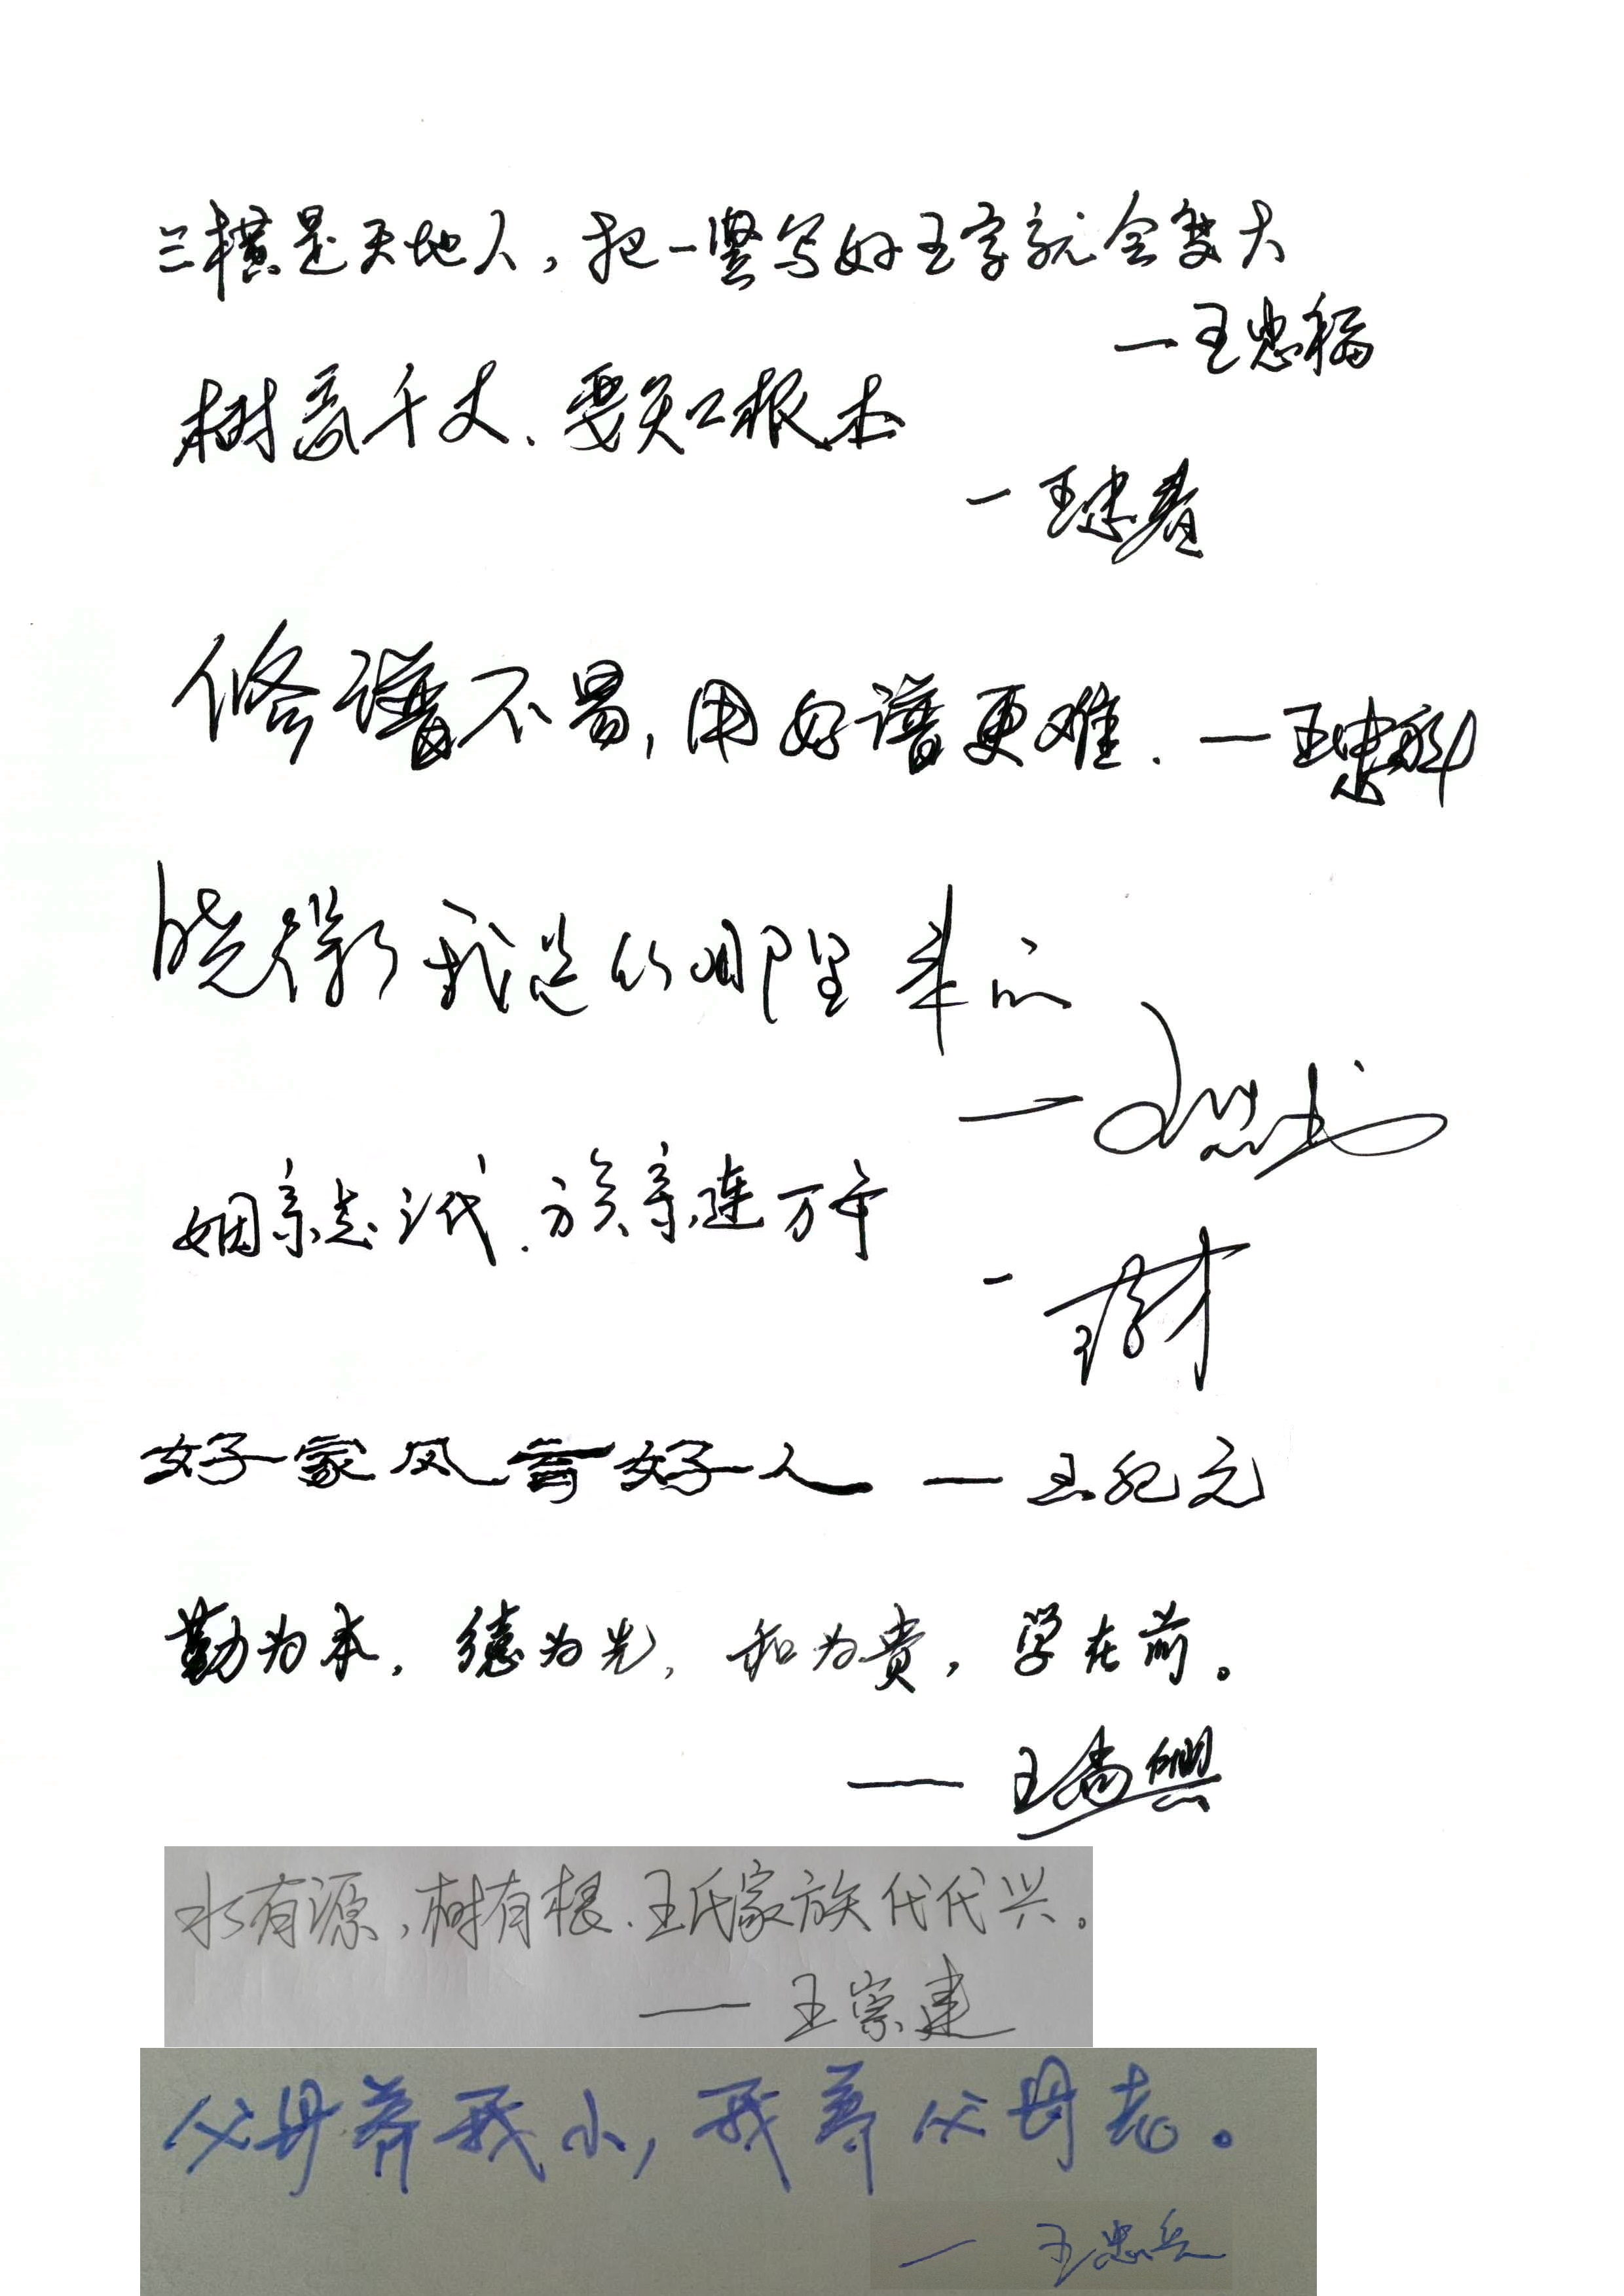 三横是天地人，把一竖写好王字就会变大
一王忠福
树高千丈、要知根本
一王忠春
修谱不易，用好谱更难．一王忠科
晓得我是从哪里来的
一王忠
姻亲 代．族亲连万年
一王 才
好家风育好人 一王纪元
勤为本，德为先，和为贵，学在前。
——王尚兴
水有源，树有根．王氏家族代代兴。
——王崇建
父母养我小，我养父母老。
一王忠兵